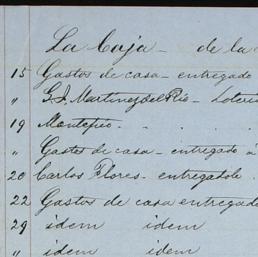 La Caja - de la
15 Gastos de casa - entregado
" G. J. Martinez del Rio - Loteria
19 Montepio - . . .
" Gastos de casa - entregado á
20 Carlos Flores - entregatole .
22 Gastos de casa entregado
29 idem idem
" idem idem